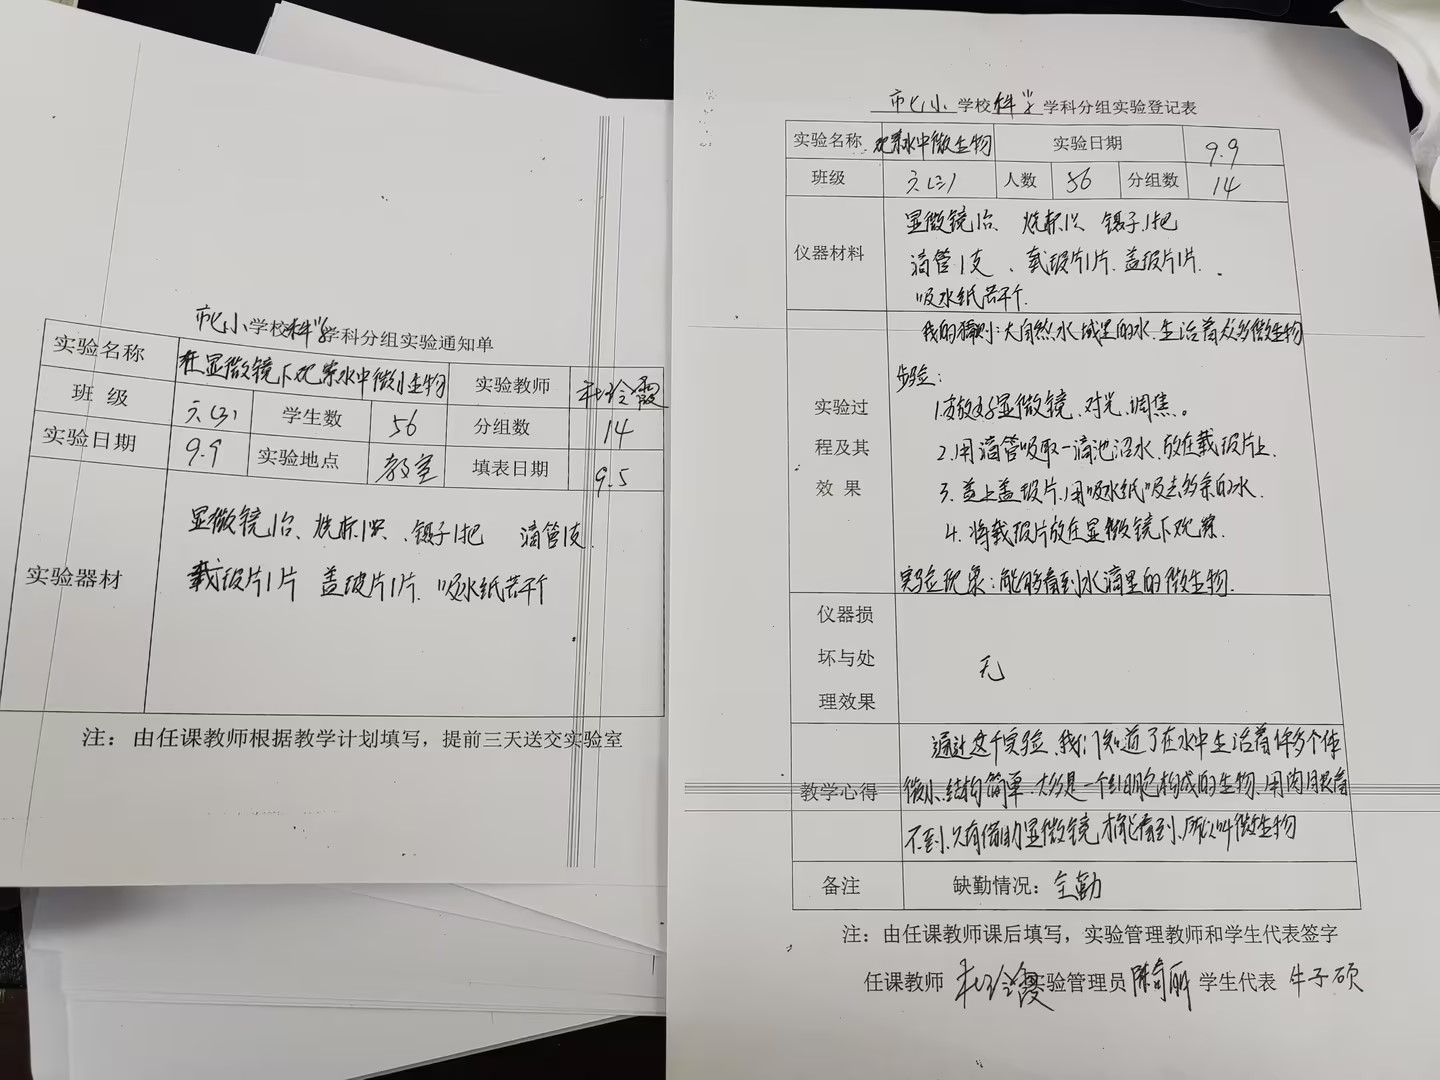 市化小学校科学学科分组实验通知单
实验名称 在显微镜下观察水中微小生物 实验教师
班 级 六(3) 学生数 56 分组数 14
实验日期 9.9 实验地点 教室 填表日期 9.5
显微镜1台、烧杯1只、镊子1把 滴管1支
实验器材 载玻片1片 盖玻片1片 吸水纸若干个
注：由任课教师根据教学计划填写，提前三天送交实验室
市化小学校科学学科分组实验登记表
实验名称 观察水中微生物 实验日期 9.9
班级 六(3) 人数 56 分组数 14
仪器材料
显微镜1台 烧杯1只 镊子1把
滴管1支、载玻片1片.盖玻片1片.
吸水纸若干个.
实验过
程及其
效 果
我的猜测:大自然水域里的水.生活着众多微生物
步骤：
1.安放好显微镜.对光.调焦。
2.用滴管吸取一滴池沼水.放在载玻片上.
3.盖上盖玻片.用吸水纸吸去多余的水.
4.将载玻片放在显微镜下观察.
实验现象:能够看到水滴里的微生物.
仪器损
坏与处
理效果
无
教学心得
通过这个实验、我们知道了在水中生活着许多个体
微小、结构简单.大多是一个细胞构成的生物、用肉眼看
不到、只有借助显微镜.才能看到、所以叫微生物
备注 缺勤情况：全勤
注：由任课教师课后填写，实验管理教师和学生代表签字
任课教师 实验管理员 学生代表 牛子硕